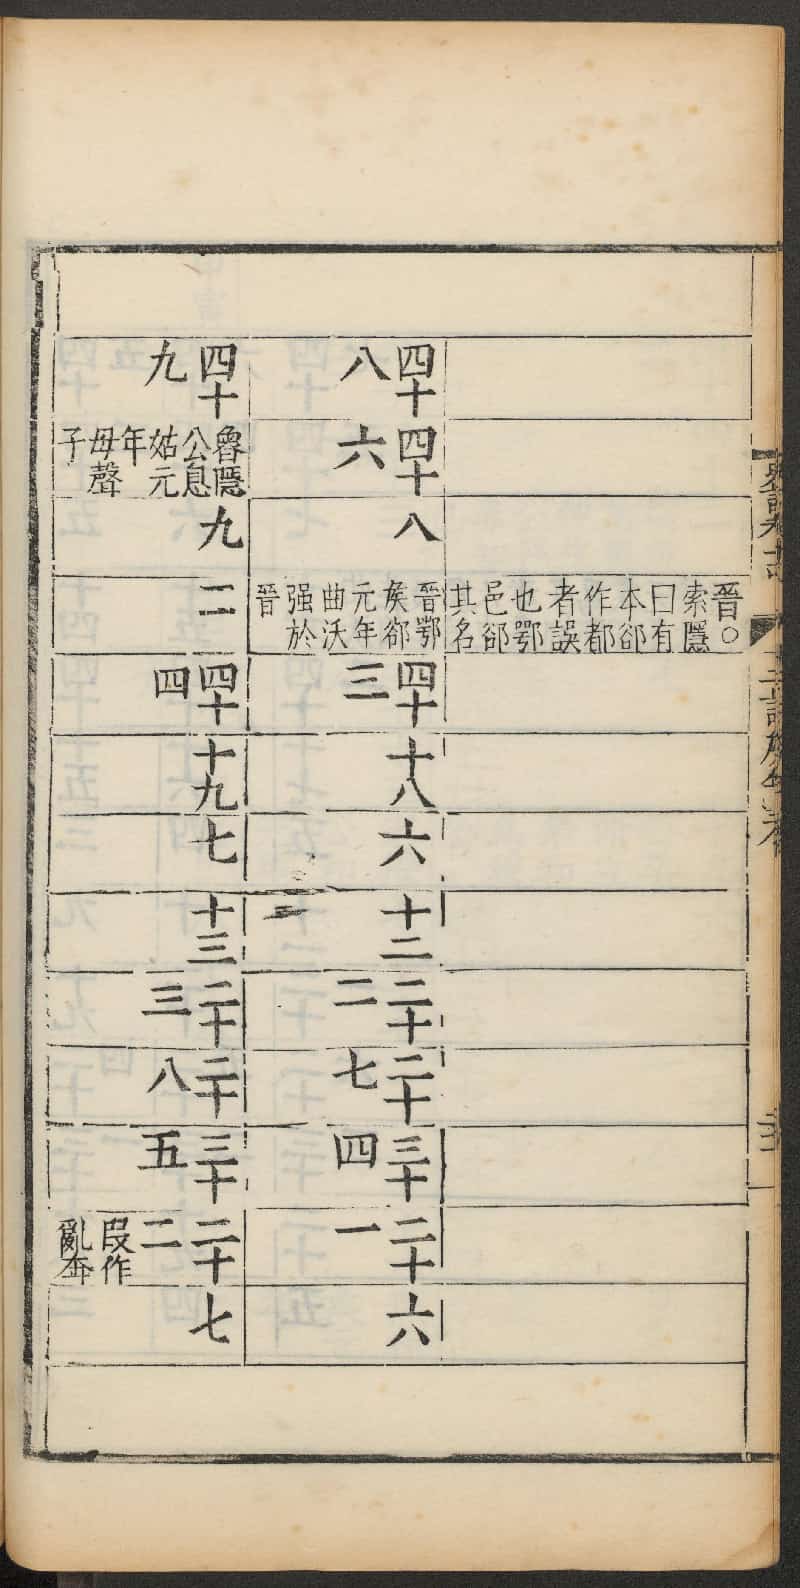 晉○
索隱
曰有
本郤
作都
者誤
也鄂
邑郤
其名
四十
八
四十
六
八
晉鄂
矦郤
元年
曲沃
强於
晉
四十
三
十八
六
十二
二十
二
二十
七
三十
四
二十
一
六
六
四十
九
魯隱
公息
姑元
年
母聲
子
九
二
四十
四
十九
七
十三
二十
三
二十
八
三十
五
二十
二
段作
亂奔
七